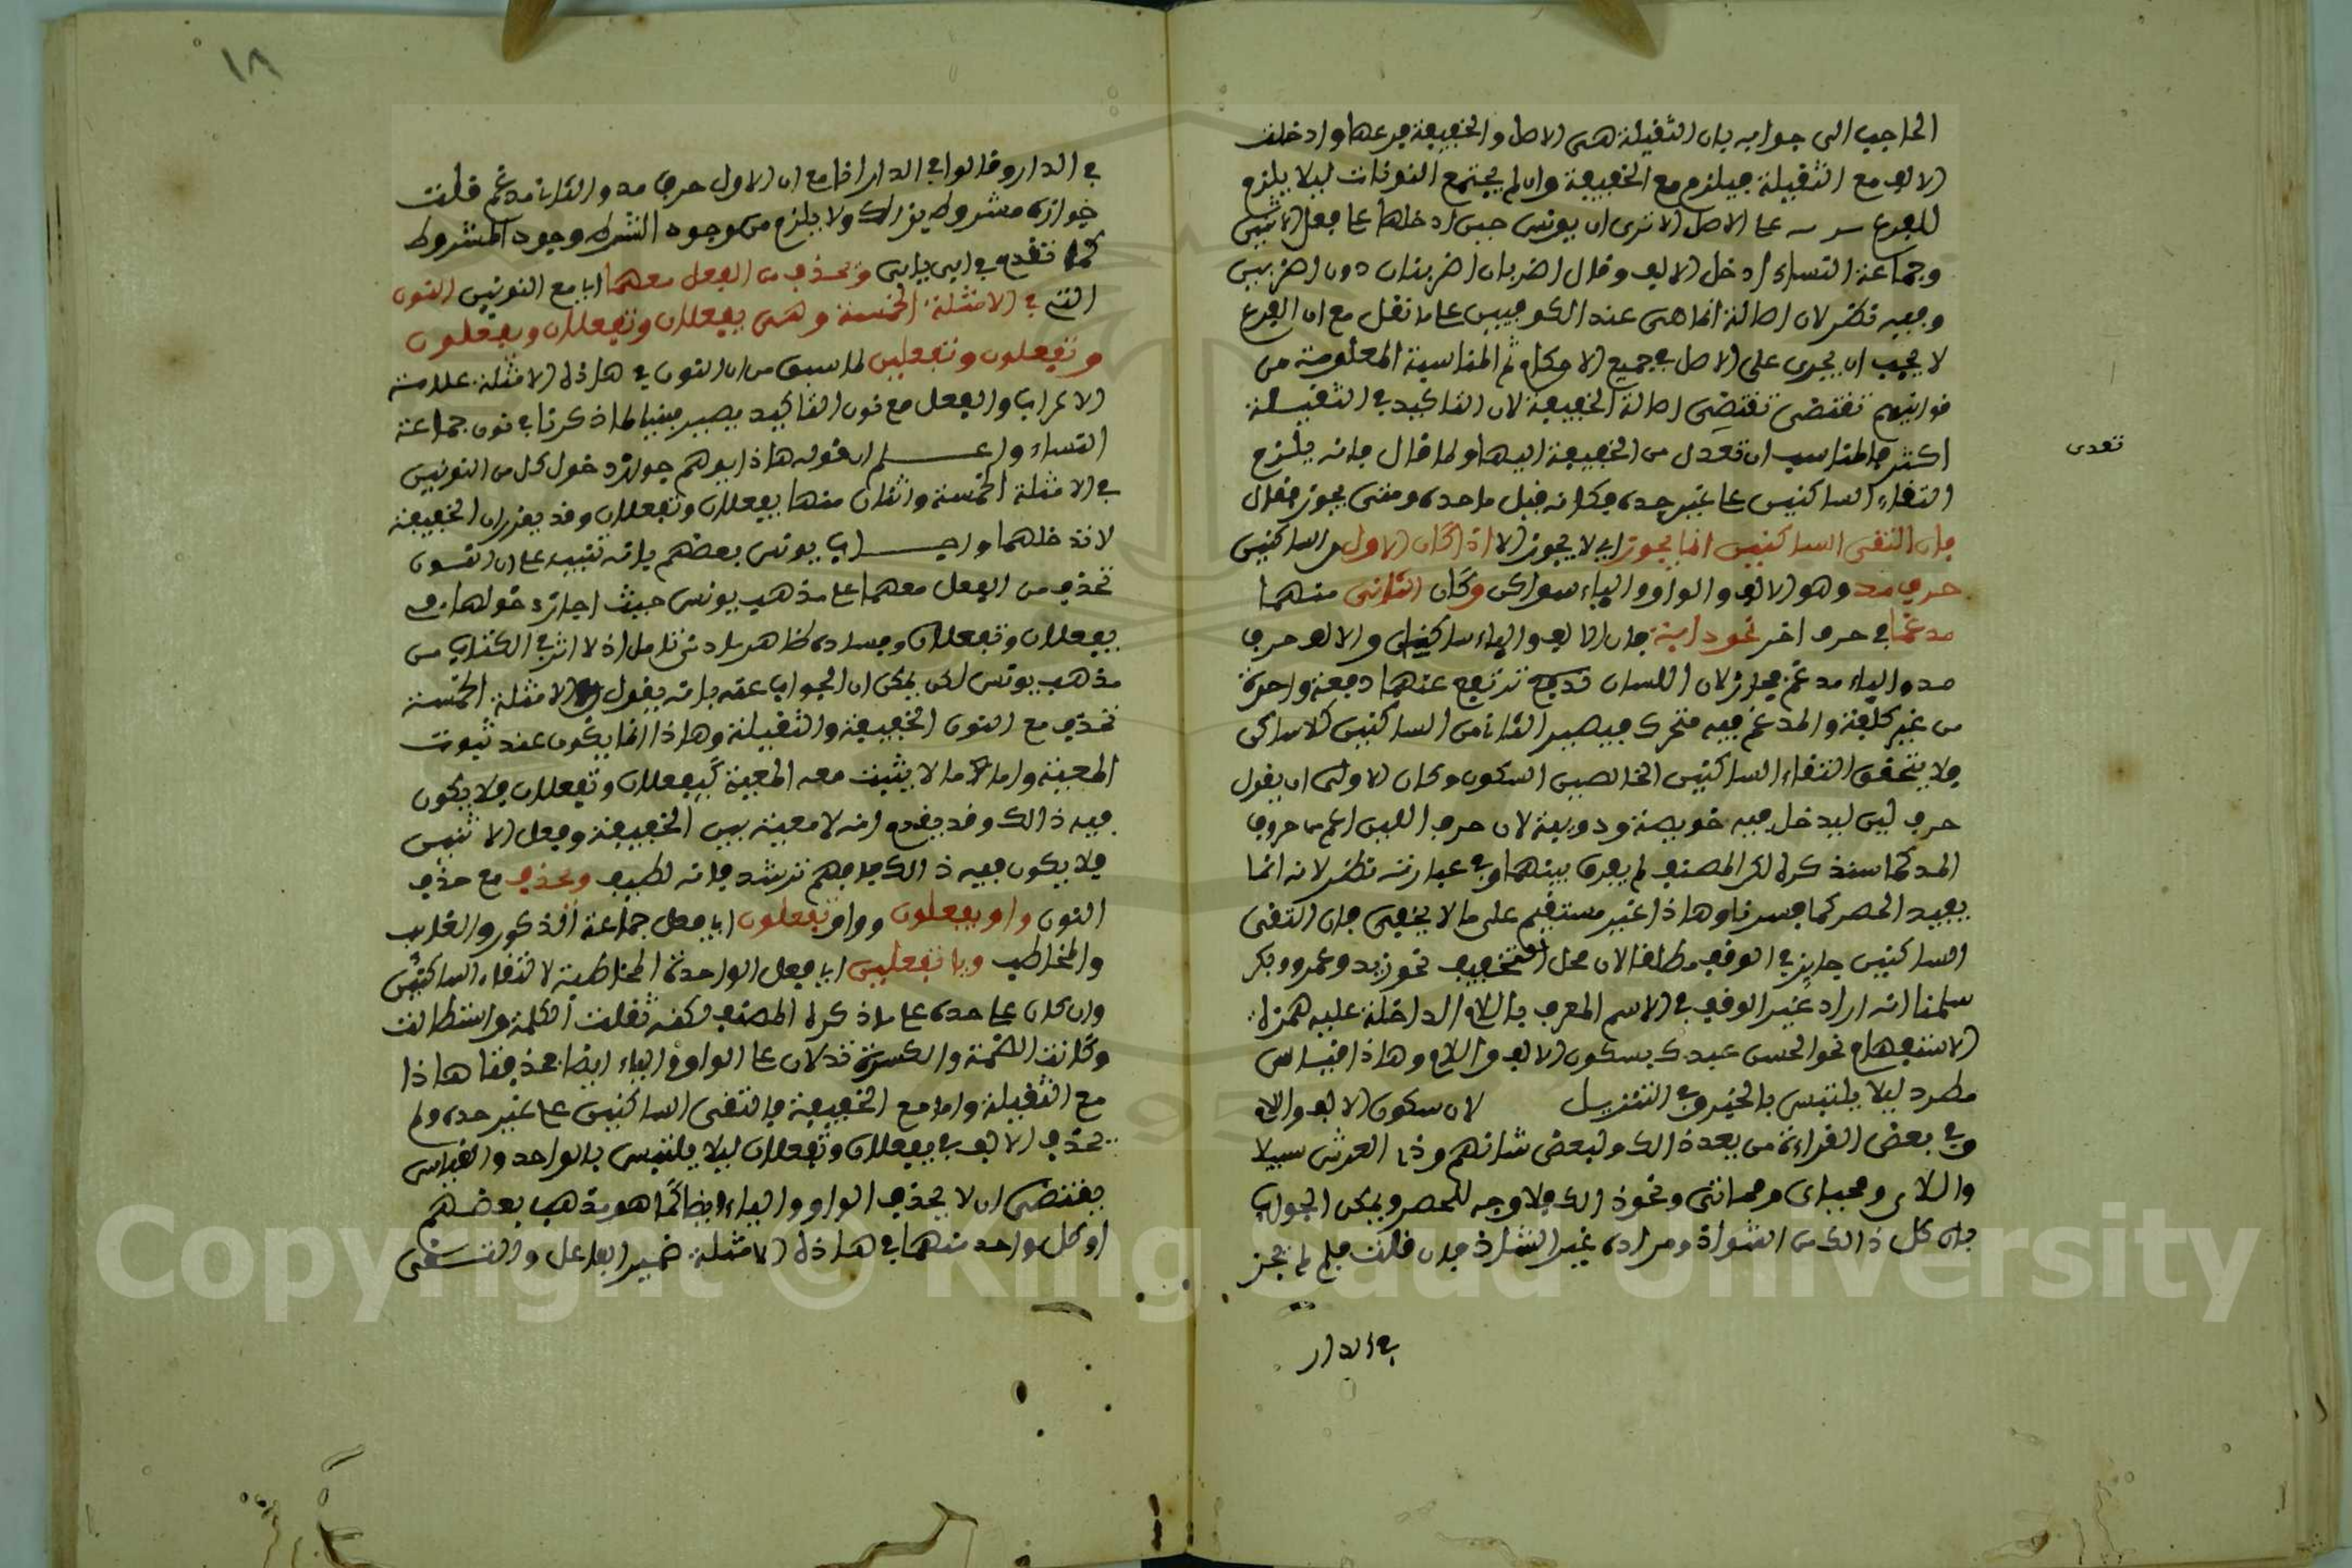 الحاجب الى جوابه بان الثقيلة هى الاصل والخفيفة فرعها وادخلت
الالف مع الثقيلة فيلزم مع الخفيفة وان لم يجتمع النونات ليلا يلزم
للفرع على الاصل الا ترى ان يونس حين ادخلها على فعل الاثنين
وجماعة النساء ادخل الالف وقال اضربان اضربنان دون اضربن
وفيه نظر لان اصالة انما هى عند الكوفيين على ما نقل مع ان الفرع
لا يجب ان يجرى على الاصل فى جميع الاحكام ثم المناسبة المعلومة من
قوانينهم تقتضى تقتضى اصالة الخفيفة لان التاكيد فى الثقيلة
اكثر فالمناسب ان تعدل من الخفيفة اليها ولما قال فانه يلزم
تعدى
التقاء الساكنين على غير حده فكانه قيل ما حده ومتى يجوز فقال
فان التقى الساكنين انما يجوز اى لا يجوز الا اذا كان الاول من الساكنين
حرف مد وهو الالف والواو والياء سواكن وكان الثانى منهما
مدغما فى حرف اخر نحو دابة فان الالف والياء ساكنان والالف حرف
مد والياء مدغم فجاز لان اللسان ترتفع عنهما دفعة واحدة
من غير كلفة والمدغم فيه متحرك فيصير الثانى من الساكنين كلا ساكن
فلا يتحقق التقاء الساكنين الخالصين السكون وكان الاولى ان يقول
حرف لين ليدخل فيه خويصة ودويبة لان حرف اللين اعم من حروف
المد كما سنذكره لكن المصنف لم يفرق بينهما وفى عبارته نظر لانه انما
يفيد الحصر كما فسرنا وهاذا غير مستقيم على ما لا يخفى فان التقى
الساكنين جايز فى الوقف مطلقا لان محل التخفيف نحو زيد وعمرو وبكر
سلمنا انه اراد غير الوقف فى الاسم المعرف باللام الداخلة عليه همزة
الاستفهام نحو الحسن عندك بسكون الالف واللام وهاذا قياس
مطرد ليلا يلتبس بالخبر وفى التنزيل لان سكون الالف واللام
وفى بعض القراءة من بعد ذالك ولبعض شانهم وذى العرش سبيلا
واللاى ومحياى ومماتى ونحو ذالك فلا وجه للحصر ويمكن الجواب
بان كل ذالك من الشواذ ومراده غير الشاذ فان قلت فلم لم يجز
فى الدار
١٨
فى الدار وقالوا فى الدار انا مع ان الاول حرف مد والثانى مدغم قلت
جوازه مشروط بذالك ولا يلزم من وجود الشرط وجود المشروط
كما تقدم فى ابى يابى وتحذف من الفعل معهما اى مع النونين النون
التى فى الامثلة الخمسة وهى يفعلان وتفعلان ويفعلون
وتفعلون وتفعلين لما سبق من ان النون فى هاذه الامثلة علامة
الاعراب والفعل مع نون التاكيد يصير مبنيا لما ذكرنا فى نون جماعة
النساء واعلم ان قوله هاذا يوهم جواز دخول كل من النونين
فى الامثلة الخمسة واثنان منها يفعلان وتفعلان وقد يقرر ان الخفيفة
لا تدخلهما واجاب يونس بعضهم بانه تنبيه على ان النون
تحذف من الفعل معهما على مذهب يونس حيث اجاز دخولهما فى
يفعلان وتفعلان وفساده ظاهر بادنى تامل اذ لا اثر فى الكتاب من
مذهب يونس لكن يمكن ان الجواب عنه بانه يقول الامثلة الخمسة
تحذف مع النون الخفيفة والثقيلة وهاذا انما يكون عند ثبوت
المعية واما ما لا يثبت معه المعية كيفعلان وتفعلان فلا يكون
فيه ذالك وقد يقدم انه لا معية بين الخفيفة وفعل الاثنين
فلا يكون فيه ذالك فافهم ترشد فانه لطيف وتحذف مع حذف
النون واو يفعلون وواو تفعلون اى فعل جماعة الذكور والغايب
والمخاطب ويا تفعلين اى فعل الواحدة المخاطبة لالتقاء الساكنين
وان كان على حده على ما ذكره المصنف لكنه ثقلت الكلمة واستطالت
وكانت الضمة والكسرة تدلان على الواو والياء ايضا فحذفتا هاذا
مع الثقيلة واما مع الخفيفة فالتقى الساكنين على غير حده ولم
تحذف الالف فى يفعلان وتفعلان ليلا يلتبس بالواحد والقياس
يقتضى ان لا يحذف الواو والياء ايضا كما هو مذهب بعضهم
او كل واحد منهما فى هاذه الامثلة ضمير الفاعل والتقى
Copyright © King Saud University